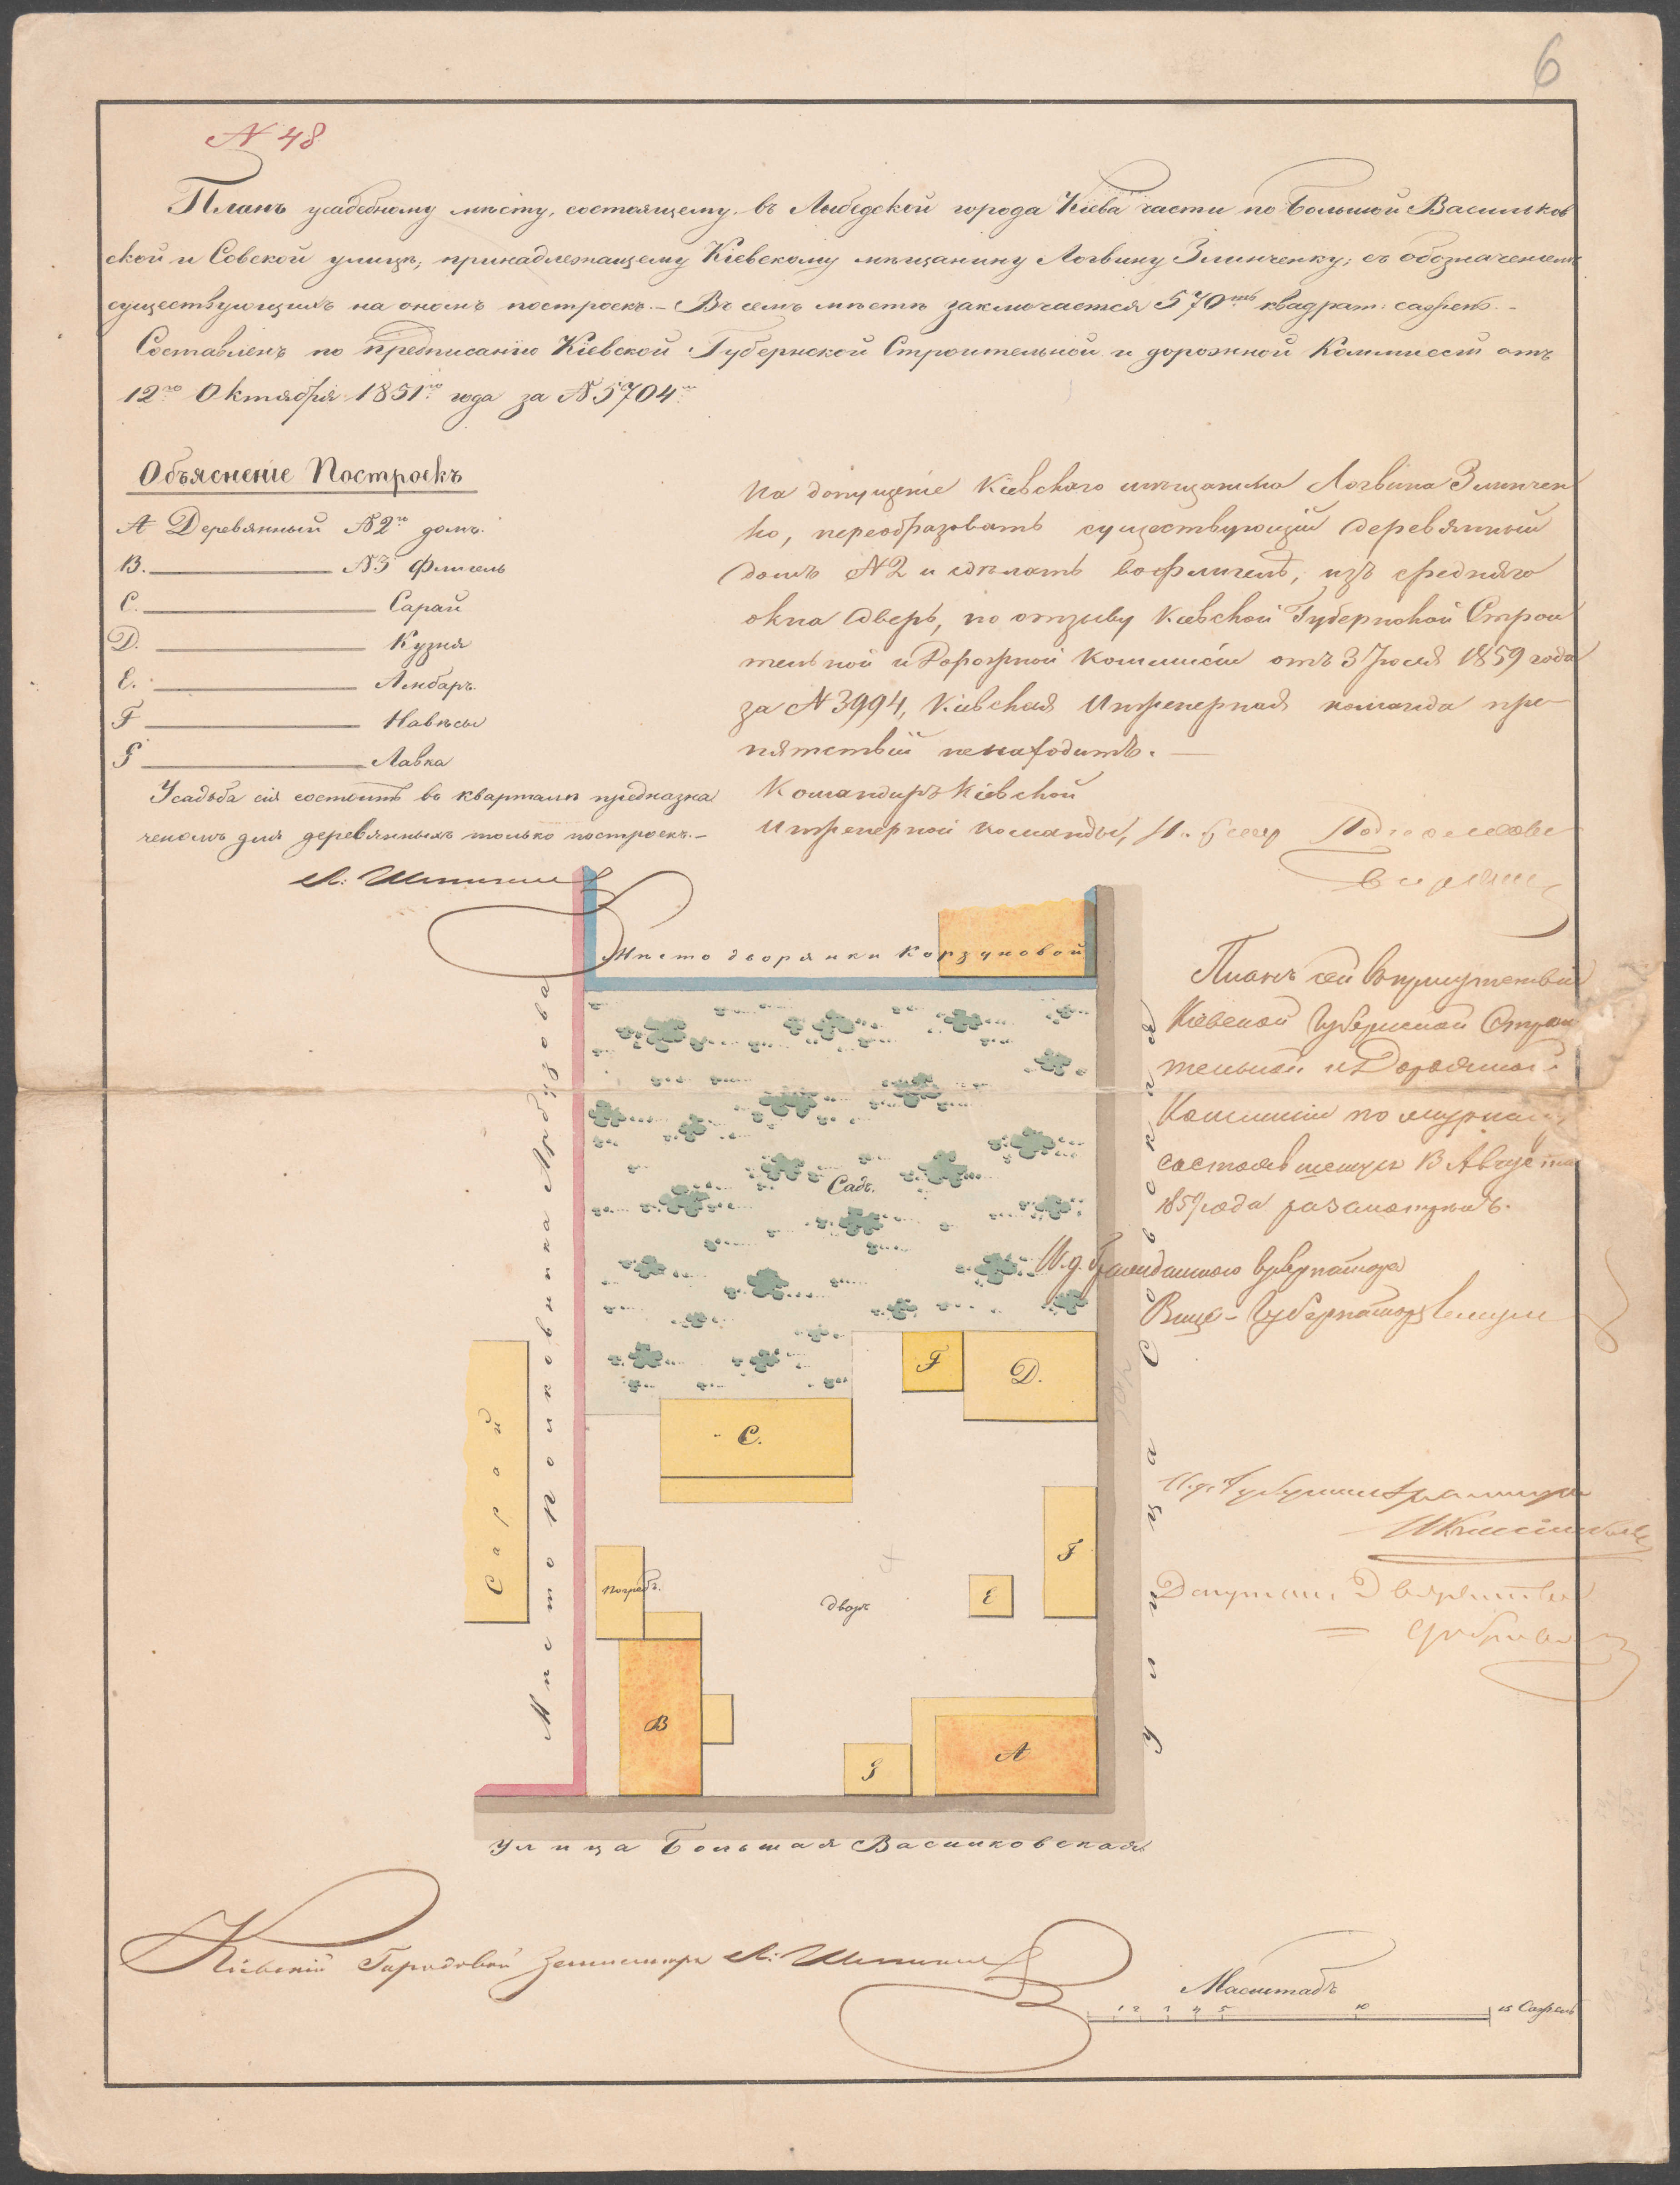 6
N 48
Планъ усадебному мѣсту, состоящему въ Лыбедской города Кіева части по Большой Васильков
ской и Совской улицѣ, принадлежащему Кіевскому мѣщанину Логвину Злинченку; съ обозначеніемъ
существующихъ на ономъ построекъ. – Въ семъ мѣстѣ заключается 570ть квадрат: сажень. –
Составленъ по предписанію Кіевской Губернской Строительной и дорожной Коммиссіи отъ
12го Октября 1851го года за N 5704м
Объясненіе Построекъ
A Деревянный N 2й домъ.
B. N 3 Флигель
C. Сарай
D. Кузня
E. Амбаръ.
F Навѣсы
G Лавка
Усадьба сія состоитъ въ кварталѣ предназна
ченомъ для деревянныхъ только построекъ. –
На допущеніе Кіевскаго мѣщанина Логвина Злинчен
ко, переобразовать существующій деревянный
домъ N 2 и сдѣлать во флигелѣ, изъ средняго
окна дверь, по отзыву Кіевской Губернской Строи
тельной и Дорожной Коммисіи отъ 3 Іюля 1859 года
за N 3994, Кіевская Инженерная команда пре
пятствій ненаходитъ. –
Командиръ Кіевской
Инженерной команды,
Мѣсто дворянки Корзуновой
Мѣсто Полковника
Сарай
Садъ.
F
D.
C.
F
E
Погребъ.
дворъ
B
G
A
Улица Совская
Улица Большая Васильковская
Планъ сей въ присутствіи
Кіевской Губернской Строи
тельной и Дорожной
Коммисіи по журналу
состоявшемуся 13 Августа
1859 года разсмотренъ.
И.д. Гражданскаго Губернатора
Вице-Губернаторъ
Кіевскій Городовой Землемѣръ
Масштабъ
1 2 3 4 5 10 15 Сажень